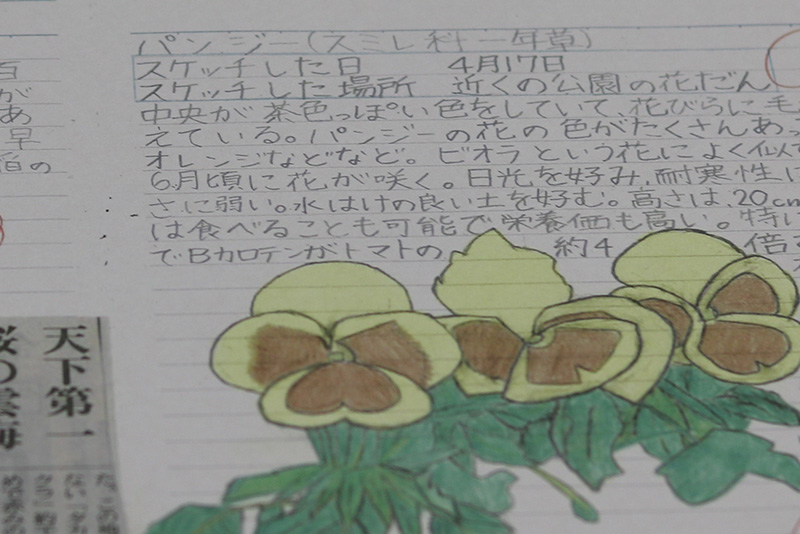 パンジー(スミレ科 一年草)
スケッチした日 4月17日
スケッチした場所 近くの公園の花だん
中央が茶色っぽい色をしていて、花びらに毛
えている。パンジーの花の色がたくさんあっ
オレンジなどなど。ビオラという花によく似
6月頃に花が咲く。日光を好み、耐寒性に
さに弱い。水はけの良い土を好む。高さは、20cm
は食べることも可能で栄養価も高い。特に
でBカロテンがトマトの 約4 倍
百
が
あ
早
宿の
天下第一
桜の雲海